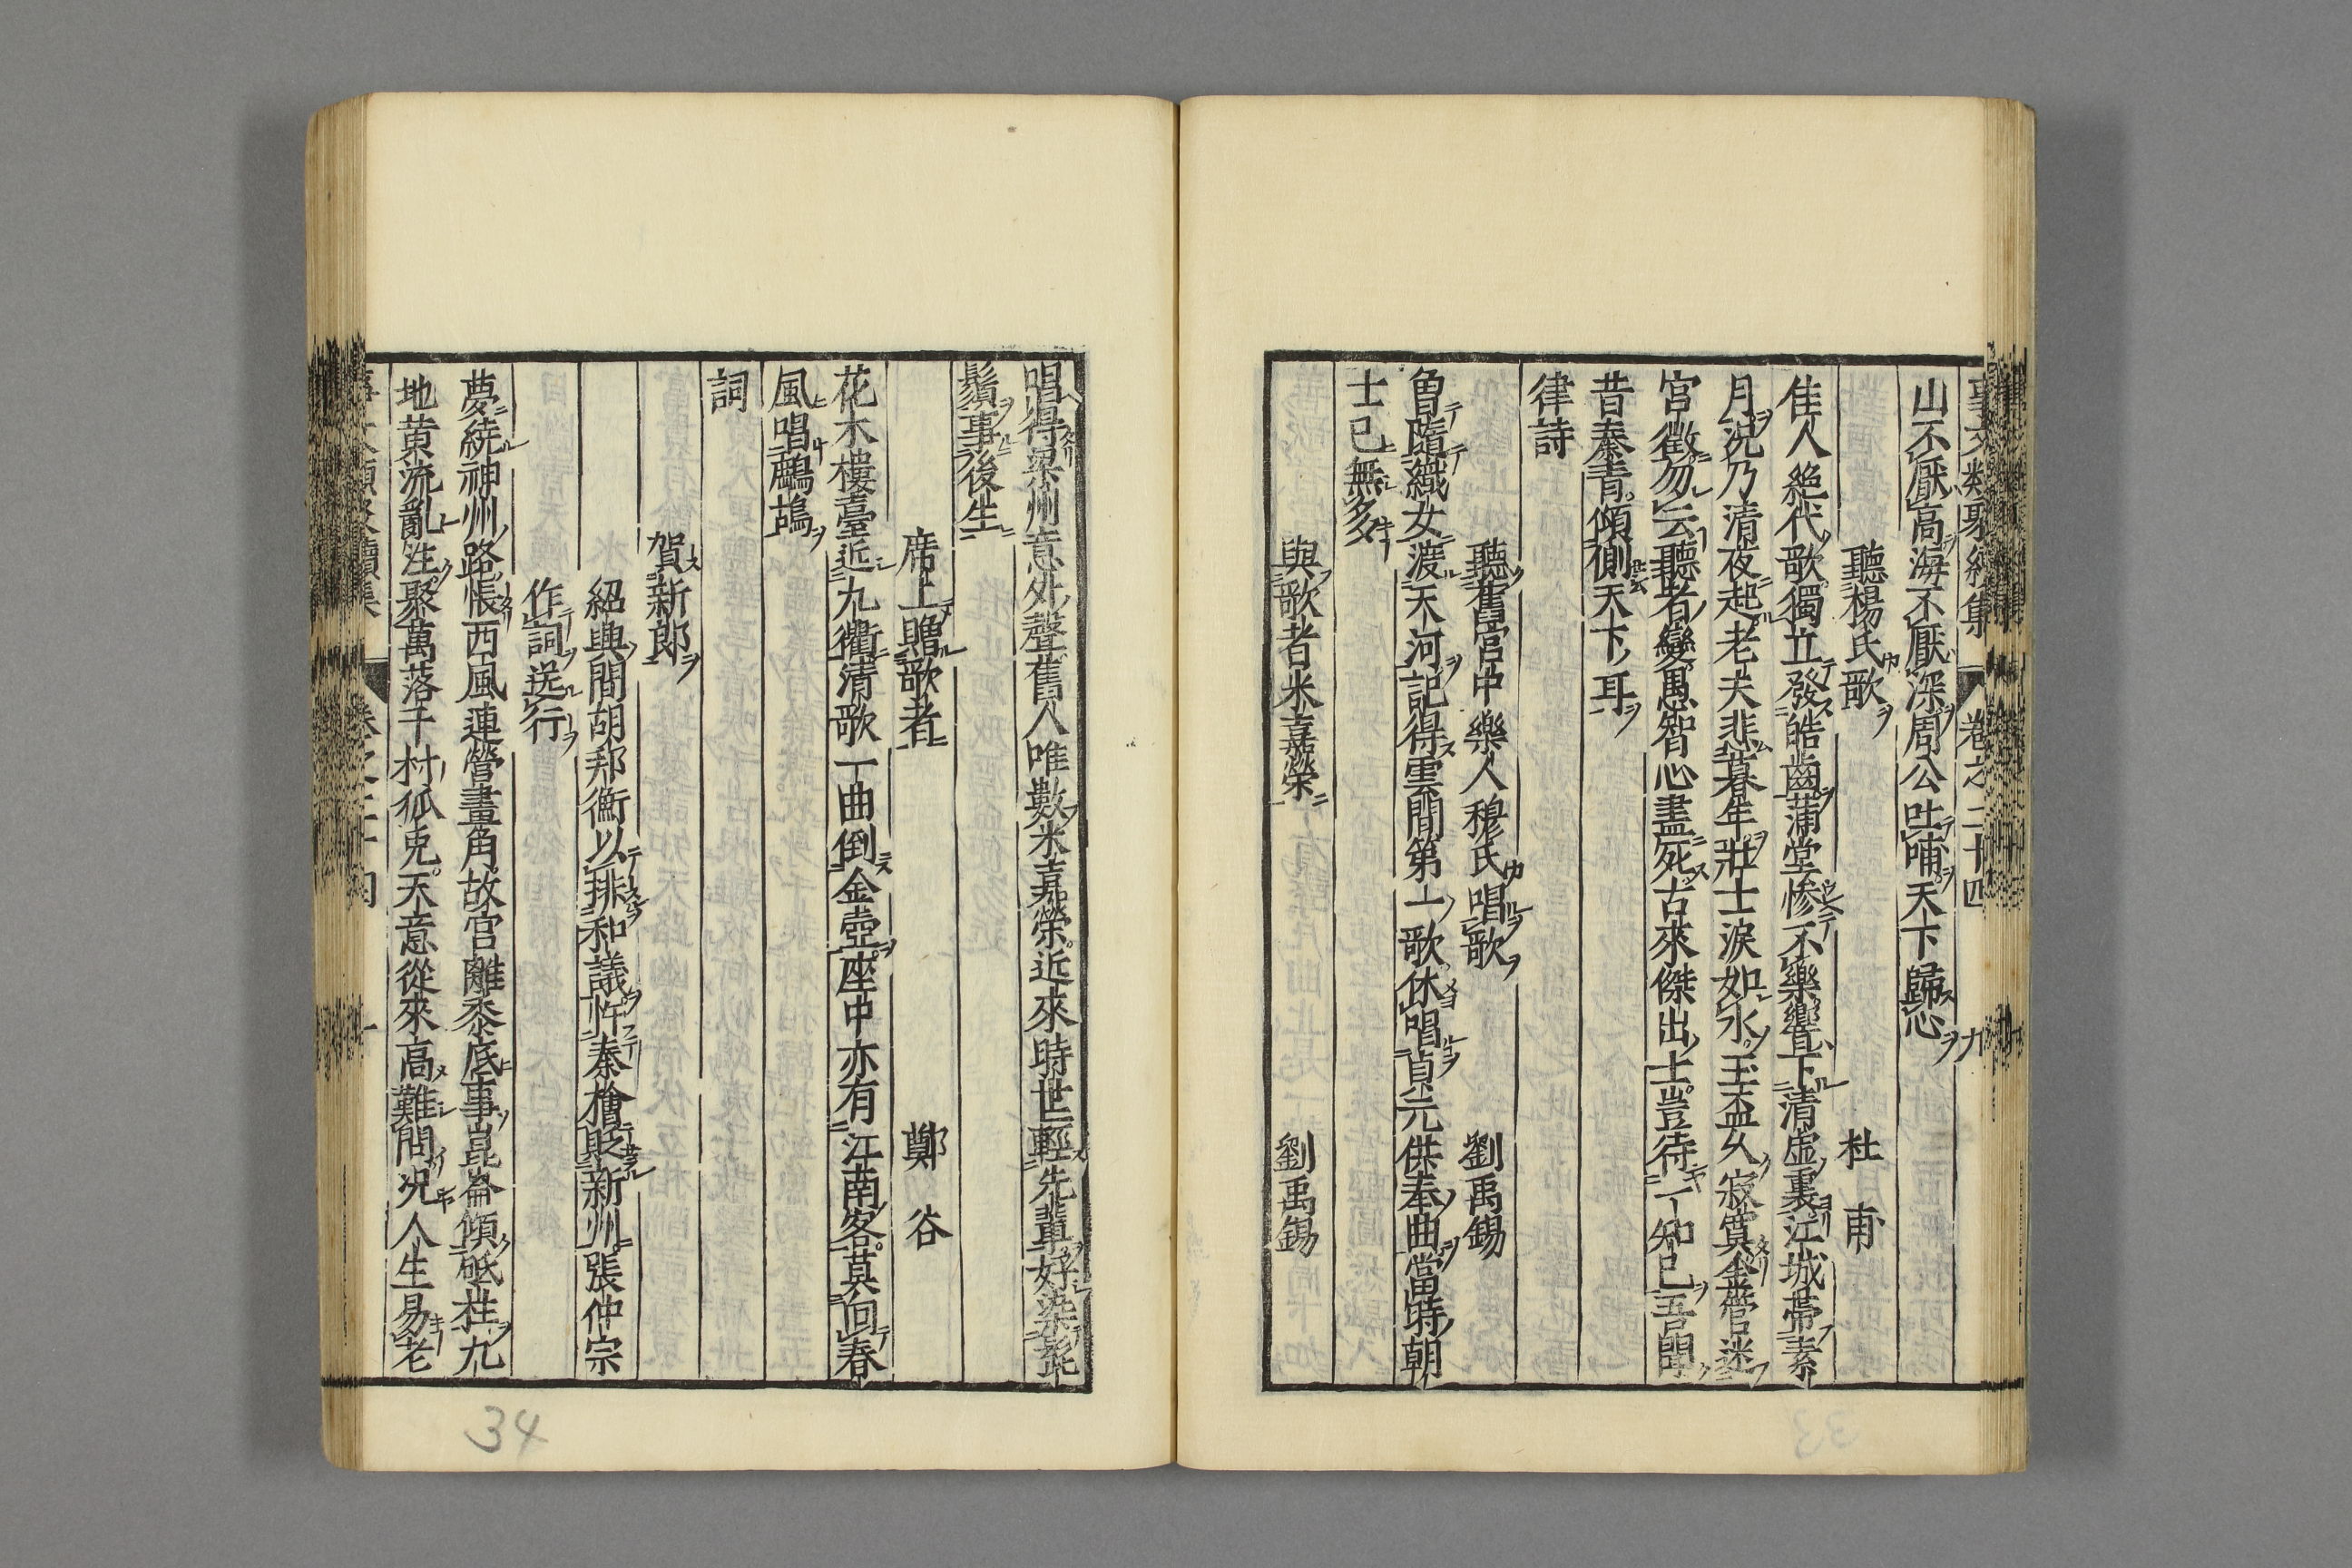 事文類聚續集 卷之二十四 九
山不厭高海不厭深周公吐哺天下歸心
聽楊氏歌 杜甫
佳人絶代歌獨立發皓齒蒲堂慘不樂響下清虚裏江城帶素
月況乃清夜起老夫悲暮年壯士淚如水玉盃久寂寞金管迷
宮徵勿云聽者變愚智心盡死古來傑出士豈待一知已吾聞
昔秦青傾側天下耳
律詩
聽舊宮中樂人穆氏唱歌 劉禹錫
曾隨織女渡天河記得雲間第一歌休唱貞元供奉曲當時朝
士已無多
與歌者米嘉榮 劉禹錫
唱得梁州意外聲舊人唯數米嘉榮近來時世輕先輩好染髭
鬚事後生
席上贈歌者 鄭谷
花木樓臺近九衢清歌一曲倒金壺座中亦有江南客莫向春
風唱鷓鴣
詞
賀新郎
紹興間胡邦衡以排和議忤秦檜貶新州張仲宗
作詞送行
夢繞神州路悵西風連營畫角故宮離黍底事崑崙傾砥柱九
地黄流亂注聚萬落千村狐兎天意從來高難問況人生易老
卷之二十四 十
34